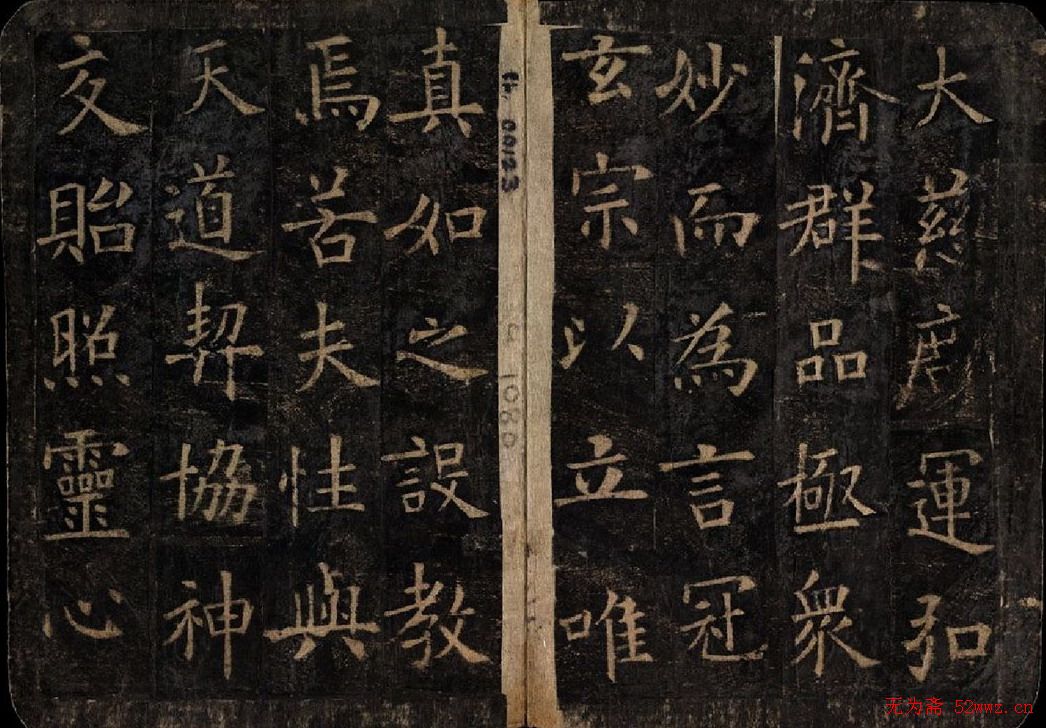 大慈運弘
濟群品極衆
妙而為言冠
玄宗以立唯
真如之設教
焉若夫性與
天道契協神
交貽照靈心
00123
1080
无为斋 52wwz.cn